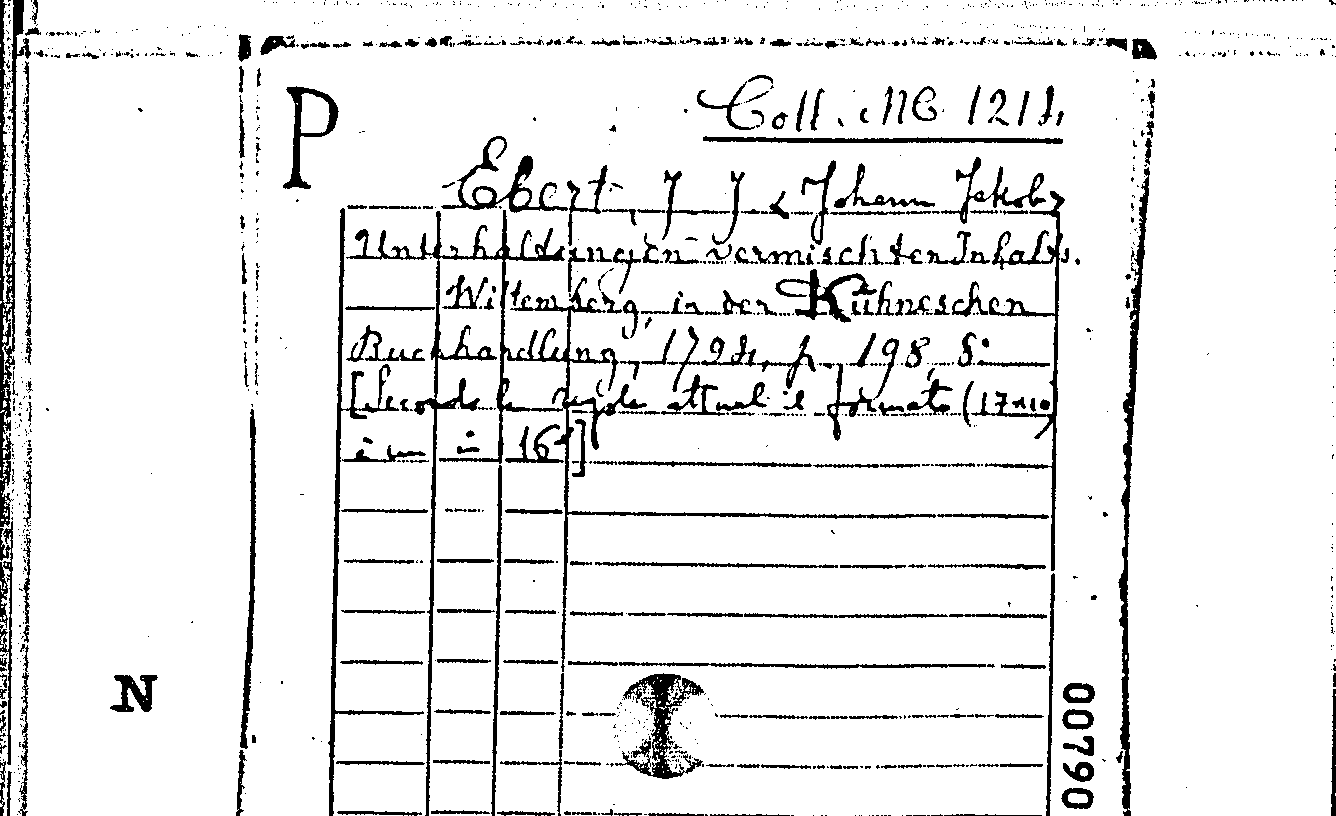 P
Coll. MC 1214
Ebert, J J < Johann Jakob>
Unterhaltungen vermischten Inhalts.
Wittemberg, in der Kühneschen
Buchhandlung, 1794, p. 198, 8°
[Secondo le regole attuali il formato (17x10)
è un in 16°]
N
00790